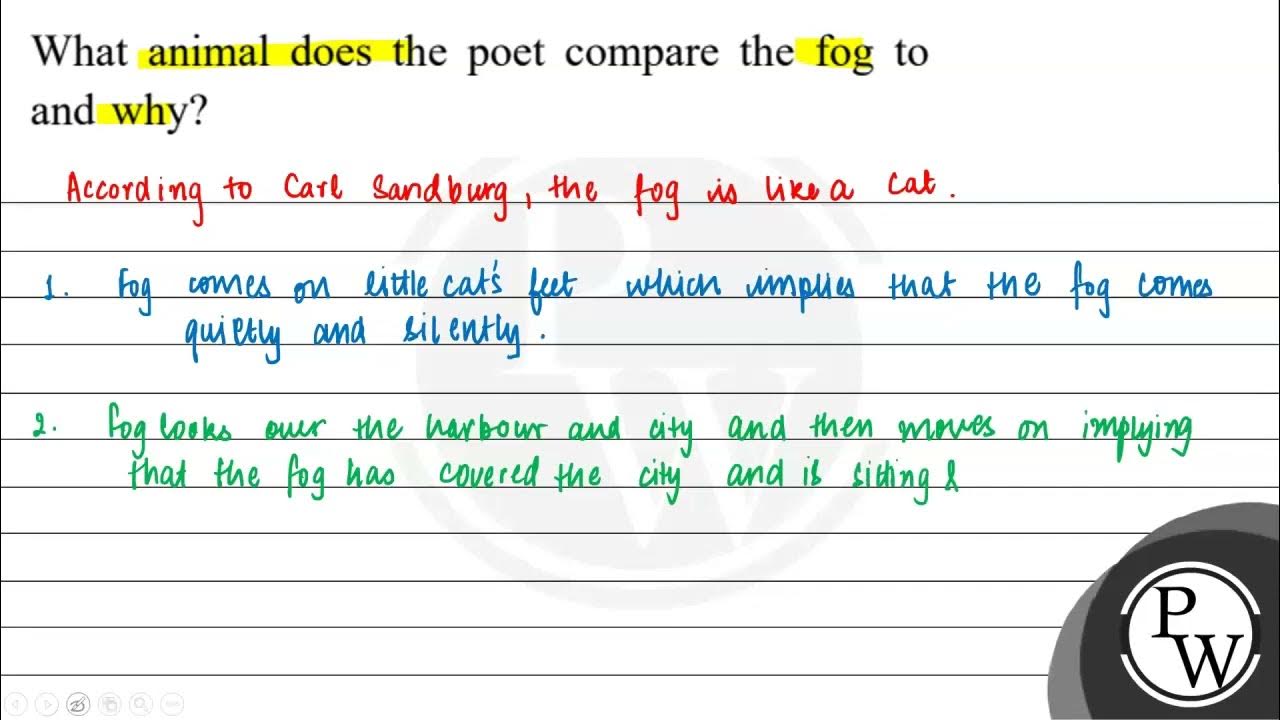 What animal does the poet compare the fog to
and why?
According to Carl Sandburg, the fog is like a cat.
1. Fog comes on little cat's feet which implies that the fog comes
quietly and silently.
2. Fog looks over the harbour and city and then moves on implying
that the fog has covered the city and is sitting &
PW
PW